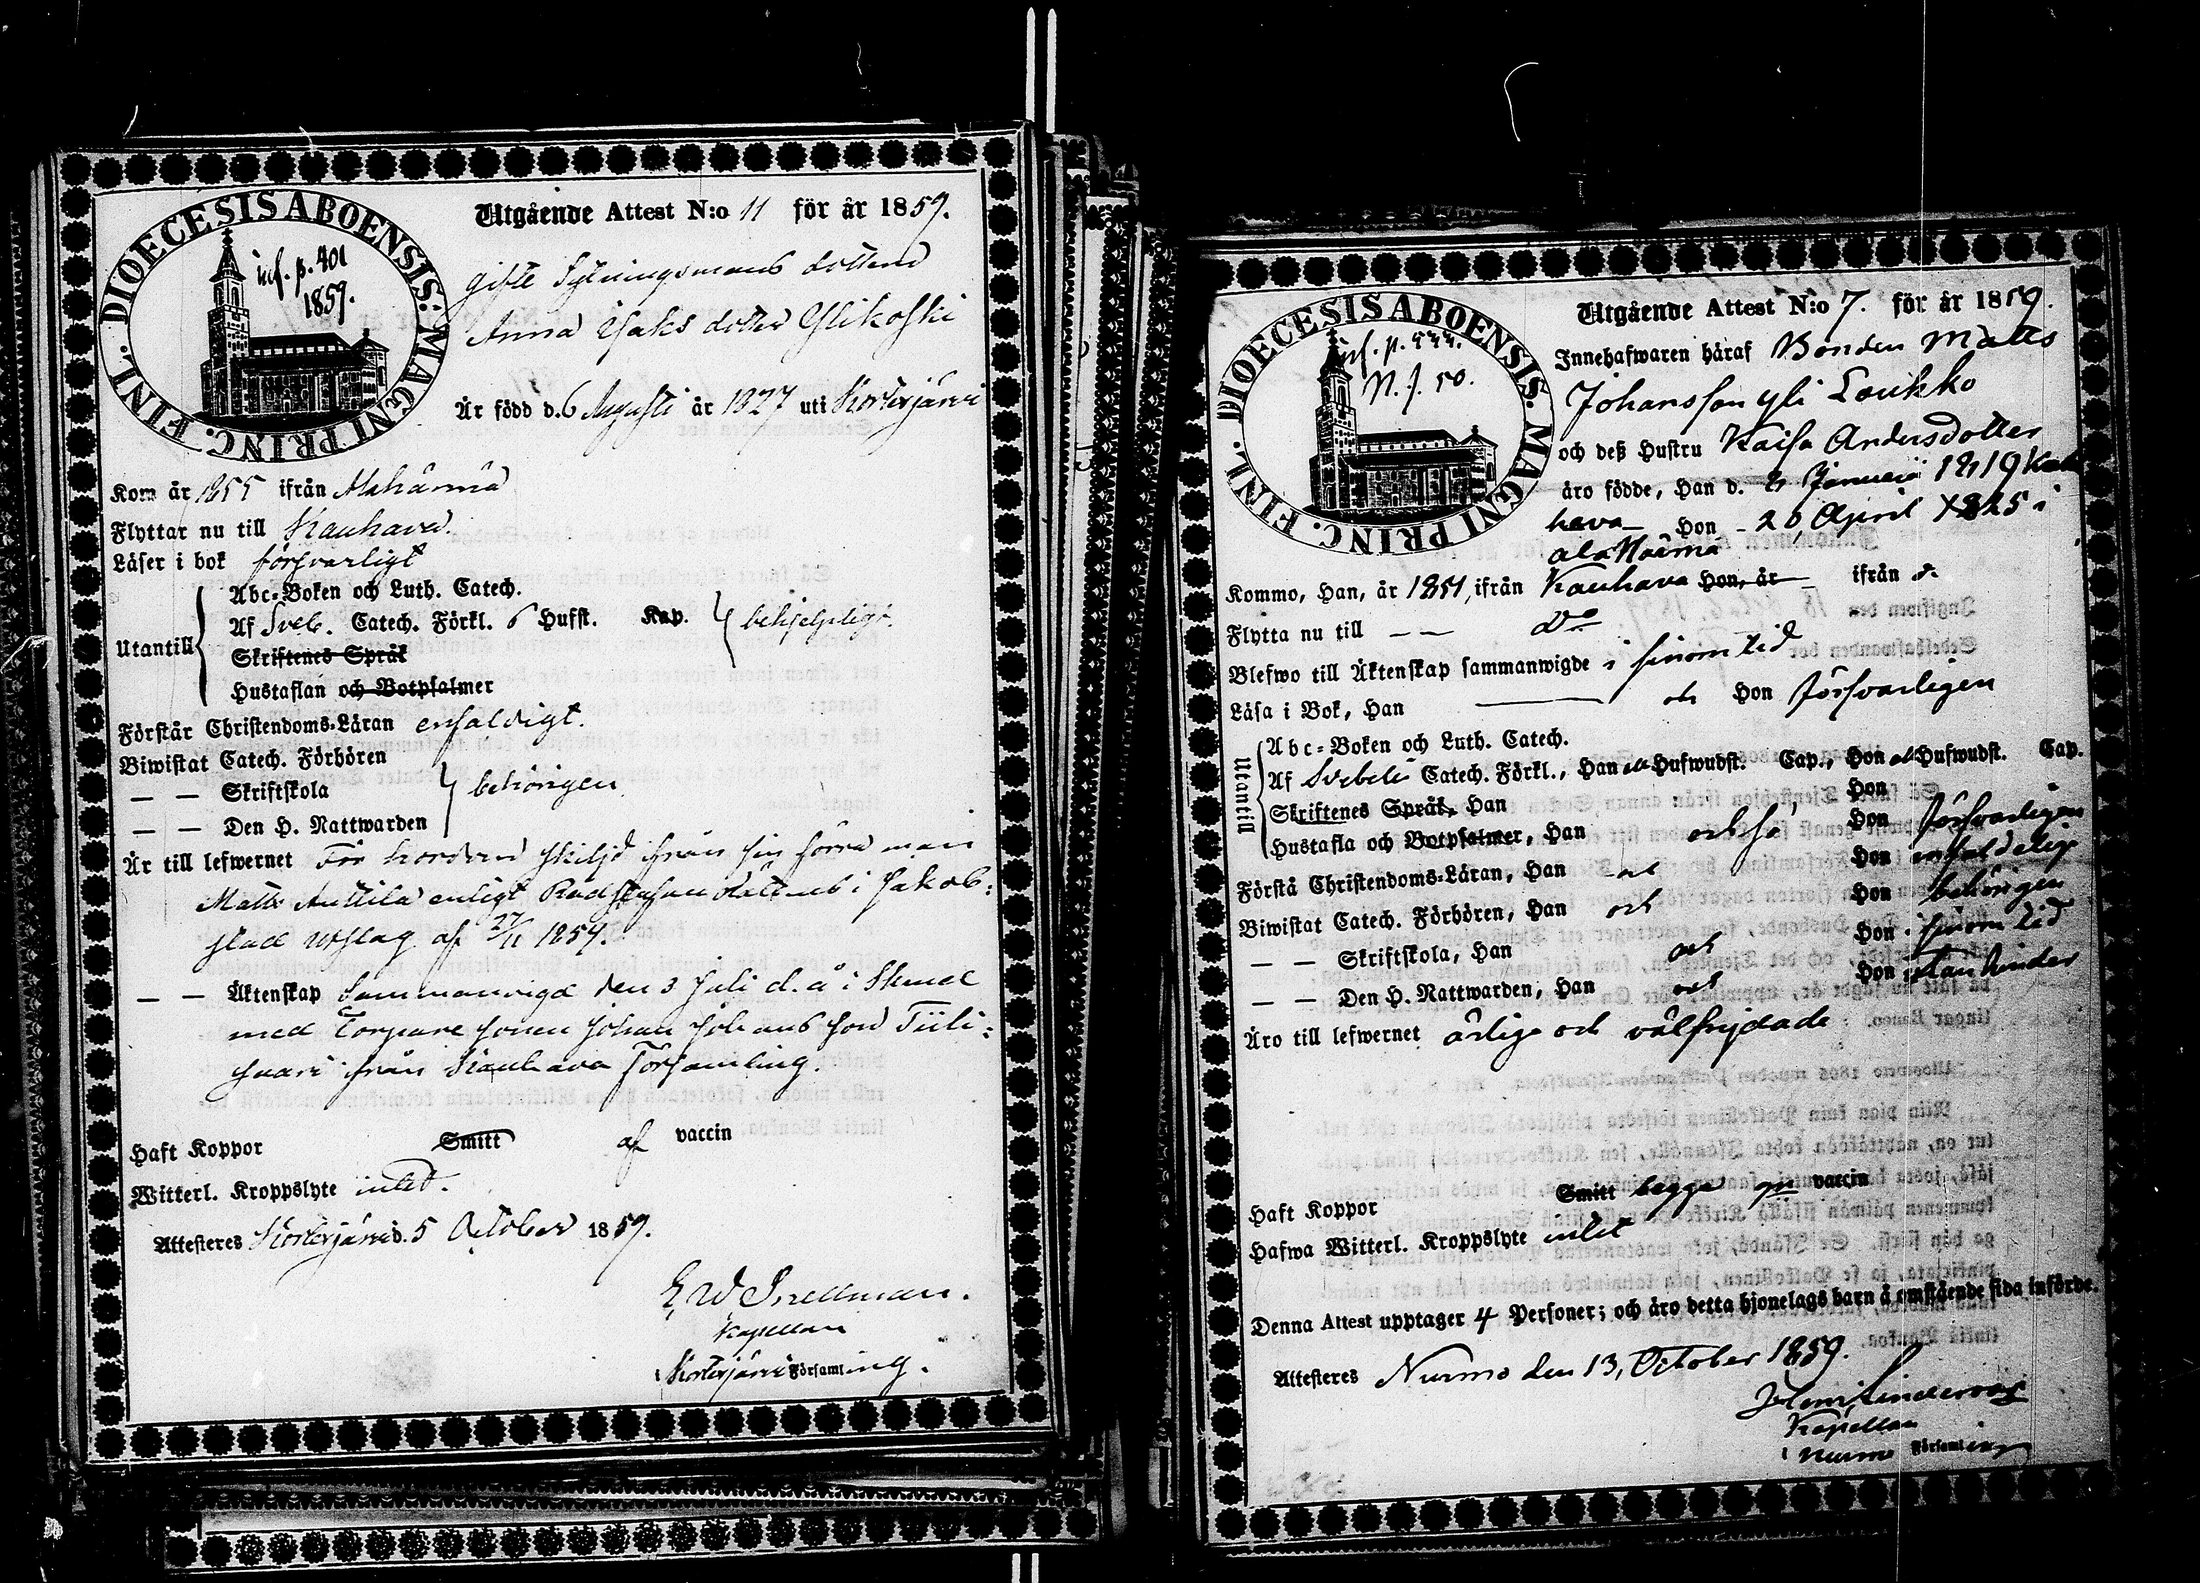 DIOECESIS ABOENSIS. MAGNI PRINC. FINL.
inf. p. 401
1859.
Utgående Attest N:o 11 för år 1859.
gifte Sytningsmans dottren
Anna Isaks dotter Ylikoski
Är född d. 6 Augusti år 1827 uti Kortesjärvi
Kom år 1855 ifrån Alahärmä
Flyttar nu till Kauhava.
Läser i bok försvarligt
Utantill
Abc-Boken och Luth. Catech.
Af Sveb. Catech. Förkl. 6 Hufst. Kap. behjelpligt.
Skriftenes Språk
Hustaflan och Botpsalmer
Förstår Christendoms-Läran enfaldigt.
Biwistat Catech. Förhören
— — Skriftskola behörigen
— — Den H. Nattwarden
Är till lefwernet För hordom skiljd från sin förra man
Matts Anttila enligt Rådstufvu Rättens i Jakob-
stad utslag af 27/11 1854.
— — Äktenskap Sammanvigd den 3 Juli d. å. i
med Torpare sonen Johan Johansson Tiili-
saari från Kauhava Församling.
Haft Koppor Smitt af vaccin
Witterl. Kroppslyte intet.
Attesteres Kortesjärvi d. 5 October 1859.
E W Snellman.
Kapellan
i Kortesjärvi Församling.
DIOECESIS ABOENSIS. MAGNI PRINC. FINL.
inf. p. 444.
N. J. 50.
Utgående Attest N:o 7. för år 1859.
Innehafwaren häraf Bonden Matts
Johansson yli Loukko
och deß Hustru Kaisa Andersdotter
äro födde, Han d. 2 Januari 1819 Kau
hava Hon 20 April 1825 i
ala Härmä
Kommo, Han, år 1851, ifrån Kauhava Hon, år ifrån d.
Flytta nu till — — Do
Blefwo till Äktenskap sammanwigde i sinom tid
Läsa i Bok, Han och Hon försvarligen
Utantill
Abc-Boken och Luth. Catech.
Af Svebelii Catech. Förkl., Han och Hufwudst. Cap., Hon Hufwudst. Cap.
Skriftenes Språk, Han Hon
Hustafla och Botpsalmer, Han också Hon försvarligen
Förstå Christendoms-Läran, Han och Hon enfaldelig
Biwistat Catech. Förhören, Han och Hon behörigen
— — Skriftskola, Han och Hon i sinom tid
— — Den H. Nattwarden, Han och Hon utan hinder
Äro till lefwernet ärlige och välfrejdade
Haft Koppor Smitt begge vaccin
Hafwa Witterl. Kroppslyte intet
Denna Attest upptager 4 Personer; och äro detta hjonelags barn å omstående sida införde.
Attesteres Nurmo den 13, October 1859.
Kapellan
i Nurmo Församling